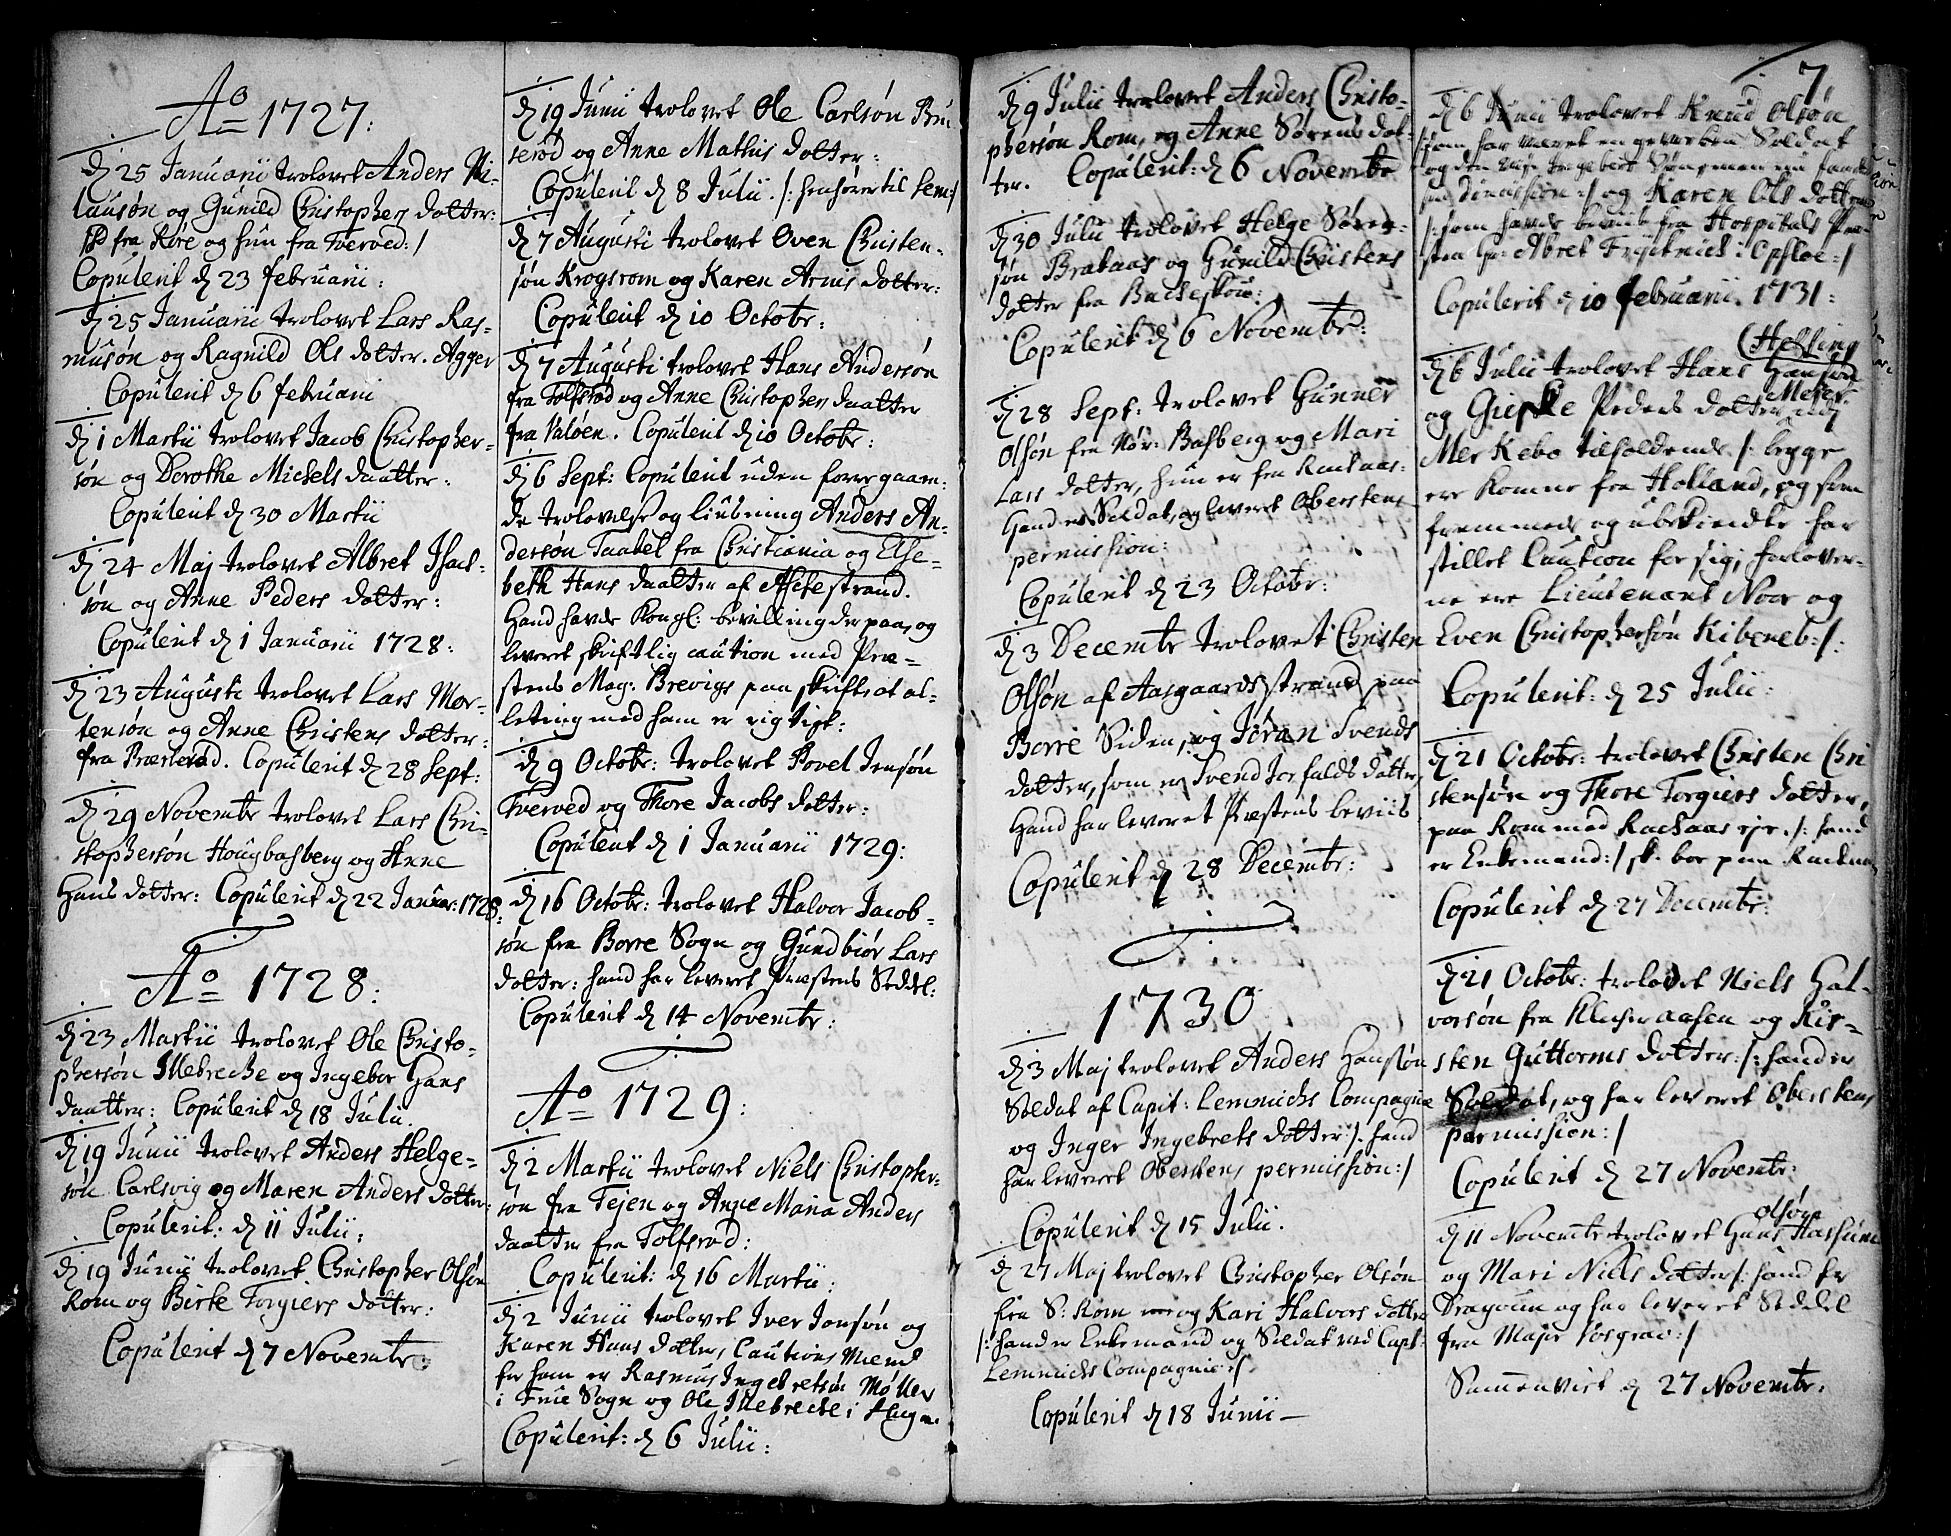 Ao 1727:
d 25 Januarii trolovet Anders Ni-
lausøn og Gunild Christophers dotter:
fra Røre og hun fra Tverved:/
Copulerit d 23 februarii:
d 25 Januarii trolovet Lars Ras-
musøn og Ragnild Ols dotter. Agger
Copulerit d 6 februarii
d 1 Martii trolovet Jacob Christopher-
søn og Dorothe Michels daatter:
Copulerit d 30 Martii
d 24 Maj trolovet Albret Isac-
søn og Anne Peders dotter:
Copulerit d 1 Januarii 1728:
d 23 Augusti trolovet Lars Mor-
tensøn og Anne Christens dotter:
fra Præsterød. Copulerit d 28 Sept:
d 29 Novembr trolovet Lars Chri-
stophersøn Hougbasberg og Anne
Hans dotter: Copulerit d 22 Januar: 1728.
Ao 1728:
d 23 Martii trolovet Ole Christo-
phersøn Illebreche og Ingebor Hans
daatter: Copulerit d 18 Julii.
d 19 Junii trolovet Anders Helge-
søn Carlsvig og Maren Anders dotter:
Copulerit: d 11 Julii:
d 19 Junii trolovet Christopher Olsøn
Rom og Birte Torgiers dotter:
Copulerit d 7 Novembr:
d 19 Junii trolovet Ole Carlsøn Bru
serød og Anne Mathis dotter:
Copulerit d 8 Julii. /: henhører til Sem:/
d 7 Augusti trolovet Oven Christen-
søn Krogsrom og Karen Arnis dotter:
Copulerit d 10 Octobr:
d 7 Augusti trolovet Hans Andersøn
fra Tolfsrød og Anne Christophers daatter
fra Valøen. Copulerit d 10 Octobr:
d 6 Sept: Copulerit uden forregaaen-
de trolovelse og liusning Anders An-
dersøn Taabel fra Christiania og Else-
beth Hans daatter af Aschestrand.
Hand havde Kongl: bevilling der paa, og
leveret skriftlig caution med Præ-
stens Mag: Brevigs paaskrift at al-
leting med ham er rigtigt:
d 9 Octobr: trolovet Povel Jensøn
Tverved og Thore Jacobs dotter:
Copulerit d 1 Januarii 1729:
d 16 Octobr: trolovet Halvor Jacob-
søn fra Borre Sogn og Gundbiør Lars
dotter: hand har leveret Præstens Seddel:
Copulerit d 14 Novembr:
Ao 1729:
d 2 Martii trolovet Niels Christopher-
søn fra Tejen og Anne Maria Anders
daatter fra Tolfsrød:
Copulerit: d 16 Martii:
d 2 Junii trolovet Iver Jonsøn og
Karen Hans dotter, Cautions Mænd
for ham er Rasmus Ingebretsøn Møller
i Frue Sogn og Ole Illebreche i Haugen.
Copulerit: d 6 Julii:
d 9 Julii trolovet Anders Christo-
phersøn Rom, og Anne Sørens dot-
ter. Copulerit: d 6 Novembr
d 30 Julii trolovet Helge Søren-
søn Brataas og Gunild Christens
dotter fra Bucheskou:
Copulerit d 6 Novembr:
d 28 Sept: trolovet Gunner
Olsøn fra Nør: Basberg og Mari
Lars dotter, hun er fra Rachaas:
Hand er Soldat, og leveret Oberstens
permission:
Copulerit d 23 Octobr:
d 3 Decembr trolovet Christen
Olsøn af Aasgaardsstrand paa
Borre Siden, og Jøran Svends
dotter, som er Svend Jorfalds dotter,
Hand har leveret Præstens beviis
Copulerit d 28 Decembr:
1730
d 3 Maj trolovet Anders Hansøn
Soldat af Capit: Lemmichs Compagnie
og Inger Ingebrets dotter: /: hand
har leveret Oberstens permission:/
Copulerit d 15 Julii.
d 27 Maj trolovet Christopher Olsøn
fra S: Rom og Kari Halvors dotter
/: hand er Enkemand og Soldat ved Capt:
Lemmichs Compagnie:/
Copulerit d 18 Junii
7.
d 6 Junii trolovet Knud Olsøn
/: som har været en geworben Soldat
og den
dimission :/ og Karen Ols dotter
/: som havde beviis fra Hospitals Præ-
sten Hr: Abret Opsloe:/
Copulerit d 10 februarii 1731:
(Helsing
d 6 Julii trolovet Hans Hansøn
Meyer
og Gieske Peders dotter,
Mer Kebo tilholdende /: begge
ere Komne fra Holland, og som
fremmede og ubekiendte har
stillet Caution for sig; forlover-
ne ere Lieutenant Noor og
Even Christophersøn Kibeneb:/:
Copulerit: d 25 Julii:
d 21 Octobr: trolovet Christen Chri
stensøn og Thore Torgiers dotter,
paa Rom med Rachaas eje. /: hand
er Enkemand:/ sk: boe paa Rachaas
Copulerit d 27 Decembr:
d 21 Octobr: trolovet Niels Hal-
vorsøn fra og Kir-
sten Guttorms dotter: /: hand er
Soldat, og har leveret Oberstens
permission:/
Copulerit d 27 Novembr:
olsøn
d 11 Novembr trolovet Hans
og Mari Niels dotter /: hand er
Dragoun og har leveret Seddel
fra Major :/
Sammenviet d 27 Novembr: